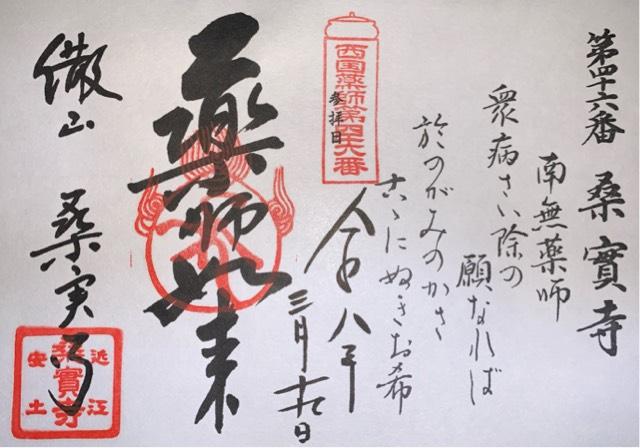 第四十六番 桑實寺
南無薬師
衆病さい除の
願なれば
於のがみのかさ
古ゝにぬきお希
西国薬師第四十六番
参拝日
令和八年
三月十九日
藥師如来
繖山 桑実寺
近江
桑實寺
安土